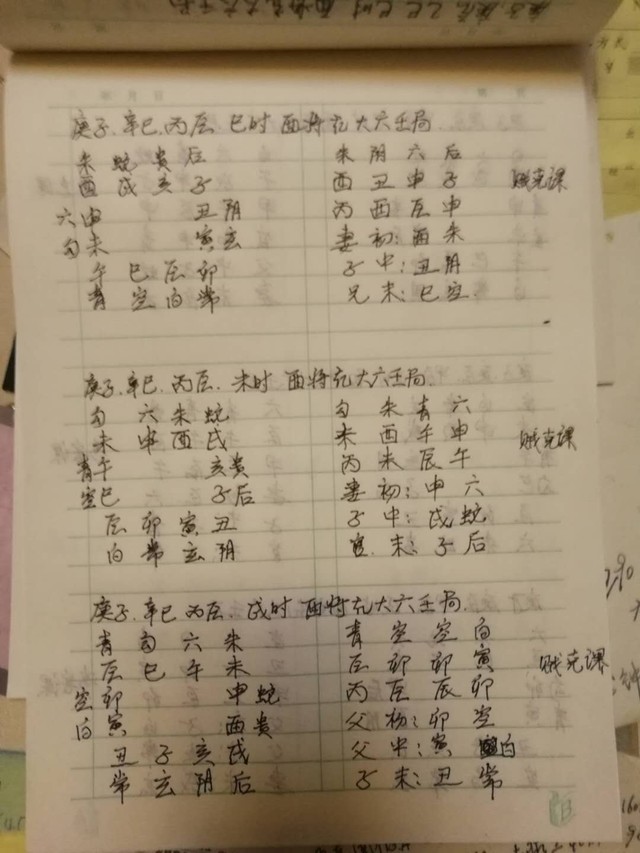 庚子、辛巳、丙辰、巳时 酉将 大六壬局.
朱 蛇 贵 后 朱 阴 六 后
酉 戌 亥 子 酉 丑 申 子 贼克课
六申 丑阴 丙 酉 辰 申
勾未 寅玄 妻 初:酉 朱
午 巳 辰 卯 子 中:丑 阴
青 空 白 常 兄 末:巳 空
庚子、辛巳、丙辰、未时 酉将 大六壬局.
勾 六 朱 蛇 勾 朱 青 六
未 申 酉 戌 未 酉 午 申 贼克课
青午 亥贵 丙 未 辰 午
空巳 子后 妻 初:申 六
辰 卯 寅 丑 子 中:戌 蛇
白 常 玄 阴 官 末:子 后
庚子、辛巳、丙辰、戌时 酉将 大六壬局.
青 勾 六 朱 青 空 空 白
辰 巳 午 未 辰 卯 卯 寅 贼克课
空卯 申蛇 丙 辰 辰 卯
白寅 酉贵 父 初:卯 空
丑 子 亥 戌 父 中:寅 白
常 玄 阴 后 子 末:丑 常